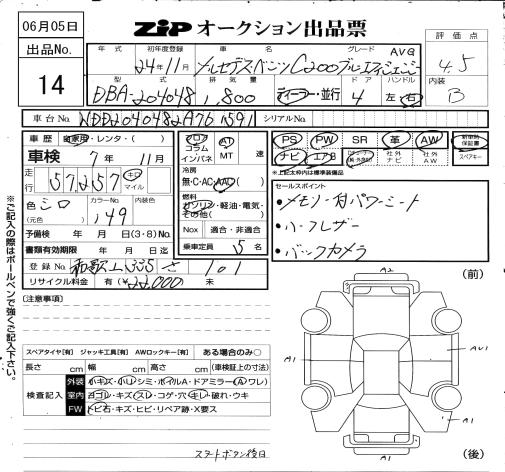 06月05日
ZIP オークション出品票
出品No.
14
年式 初年度登録 車名 グレード AVG
24年11月 メルセデスベンツC200ブルーエフィシェンシー
評価点
4.5
型式 排気量 ドア ハンドル
DBA-204048 1,800 ディーラー・並行 4 左・右
内装
B
車台No. シリアルNo.
車歴 自家用・レンタ・( )
車検 7年 11月
走行 57,257 キロ マイル
色 シロ カラーNo. 149 内装色
(元色)
予備検 年 月 日(3・8)No.
書類有効期限 年 月 日迄
登録No. 和歌山 335 さ 101
リサイクル料金 有(¥22,000) 無
フロア コラム インパネ
AT MT 速
冷房
無・C・AC・AAC
燃料
ガソリン・軽油・電気・その他( )
Nox 適合・非適合
乗車定員 5名
PS PW SR 革 AW 新車時保証書
ナビ エアB 社外ナビ 社外AW スペアキー
※上記太枠は標準装備品
セールスポイント
・メモリー付パワーシート
・ハーフレザー
・バックカメラ
※ご記入の際はボールペンで強くご記入下さい。
(注意事項)
スペアタイヤ[有] ジャッキ工具[有] AWロックキー[有] ある場合のみ○
長さ cm 幅 cm 高さ cm (車検証上の寸法)
検査記入
外装 小キズ・小リ・シミ・ボイルA・ドアミラー(A・ワレ)
室内 ヨゴレ・キズ・スレ・コゲ・穴・キレ・破れ・ウキ
FW トビ石・キズ・ヒビ・リペア跡・X要ス
スタートボタン後日
(前)
A2
A1
A1
A1
(後)